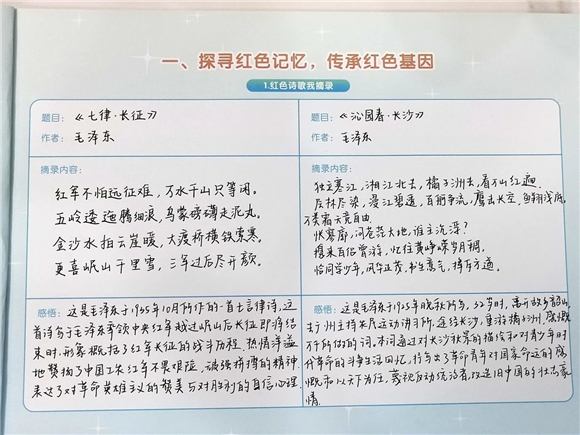 一、探寻红色记忆，传承红色基因
1.红色诗歌我摘录
题目：《七律·长征》
作者：毛泽东
摘录内容：
红军不怕远征难，万水千山只等闲。
五岭逶迤腾细浪，乌蒙磅礴走泥丸。
金沙水拍云崖暖，大渡桥横铁索寒。
更喜岷山千里雪，三军过后尽开颜。
感悟：这是毛泽东于1935年10月所作的一首七言律诗，这
首诗写于毛泽东率领中央红军越过岷山后长征即将结
束时。形象概括了红军长征的战斗历程，热情洋溢
地赞扬了中国工农红军不畏艰险，顽强拼搏的精神
表达了对革命英雄主义的赞美与对胜利的自信心理
题目：《沁园春·长沙》
作者：毛泽东
摘录内容：
独立寒江，湘江北去，橘子洲头，看万山红遍
层林尽染，漫江碧透，百舸争流，鹰击长空，鱼翔浅底，
万类霜天竞自由
怅寥廓，问苍茫大地，谁主沉浮？
携来百侣曾游，忆往昔峥嵘岁月稠。
恰同学少年，风华正茂，书生意气，挥斥方遒
感悟：这是毛泽东于1925年晚秋所写，32岁时，离开故乡韶山，
去广州主持农民运动讲习所，途经长沙，重游橘子洲，感慨
万千所做的词。本词通过对长沙秋景的描绘和对青少年时
代革命的斗争生活回忆，抒写出了革命青年对国家命运的感
慨和以天下为任，蔑视反动统治者，改造旧中国的壮志豪
情。